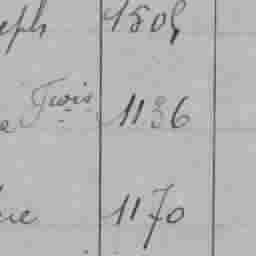 eph 1509
e Fcois 1136
ue 1170